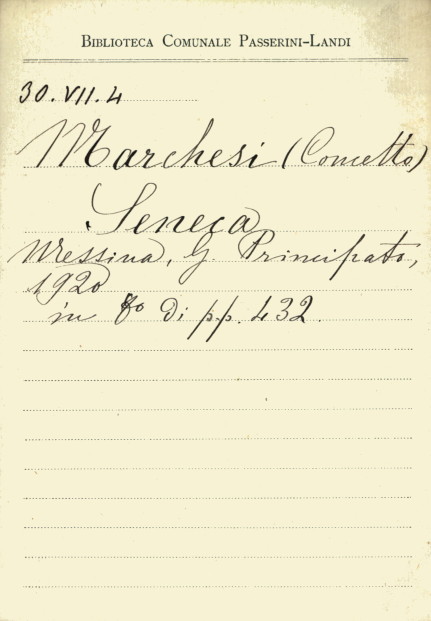 BIBLIOTECA COMUNALE PASSERINI-LANDI
30.VII.4
Marchesi (Concetto)
Seneca
Messina, G. Principato,
1920
in 8º di pp. 432.